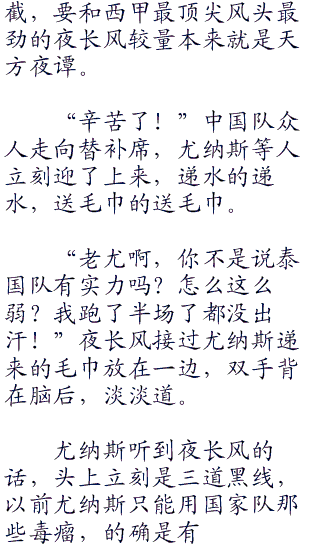 截，要和西甲最顶尖风头最
劲的夜长风较量本来就是天
方夜谭。
“辛苦了！”中国队众
人走向替补席，尤纳斯等人
立刻迎了上来，递水的递
水，送毛巾的送毛巾。
“老尤啊，你不是说泰
国队有实力吗？怎么这么
弱？我跑了半场了都没出
汗！”夜长风接过尤纳斯递
来的毛巾放在一边，双手背
在脑后，淡淡道。
尤纳斯听到夜长风的
话，头上立刻是三道黑线，
以前尤纳斯只能用国家队那
些毒瘤，的确是有